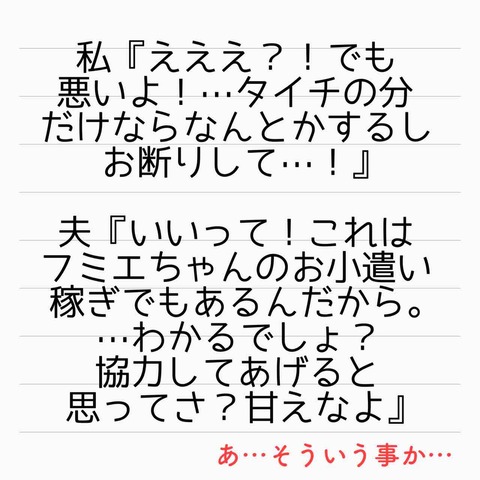 私『えええ？！でも
悪いよ！…タイチの分
だけならなんとかするし
お断りして…！』
夫『いいって！これは
フミエちゃんのお小遣い
稼ぎでもあるんだから。
…わかるでしょ？
協力してあげると
思ってさ？甘えなよ』
あ…そういう事か…